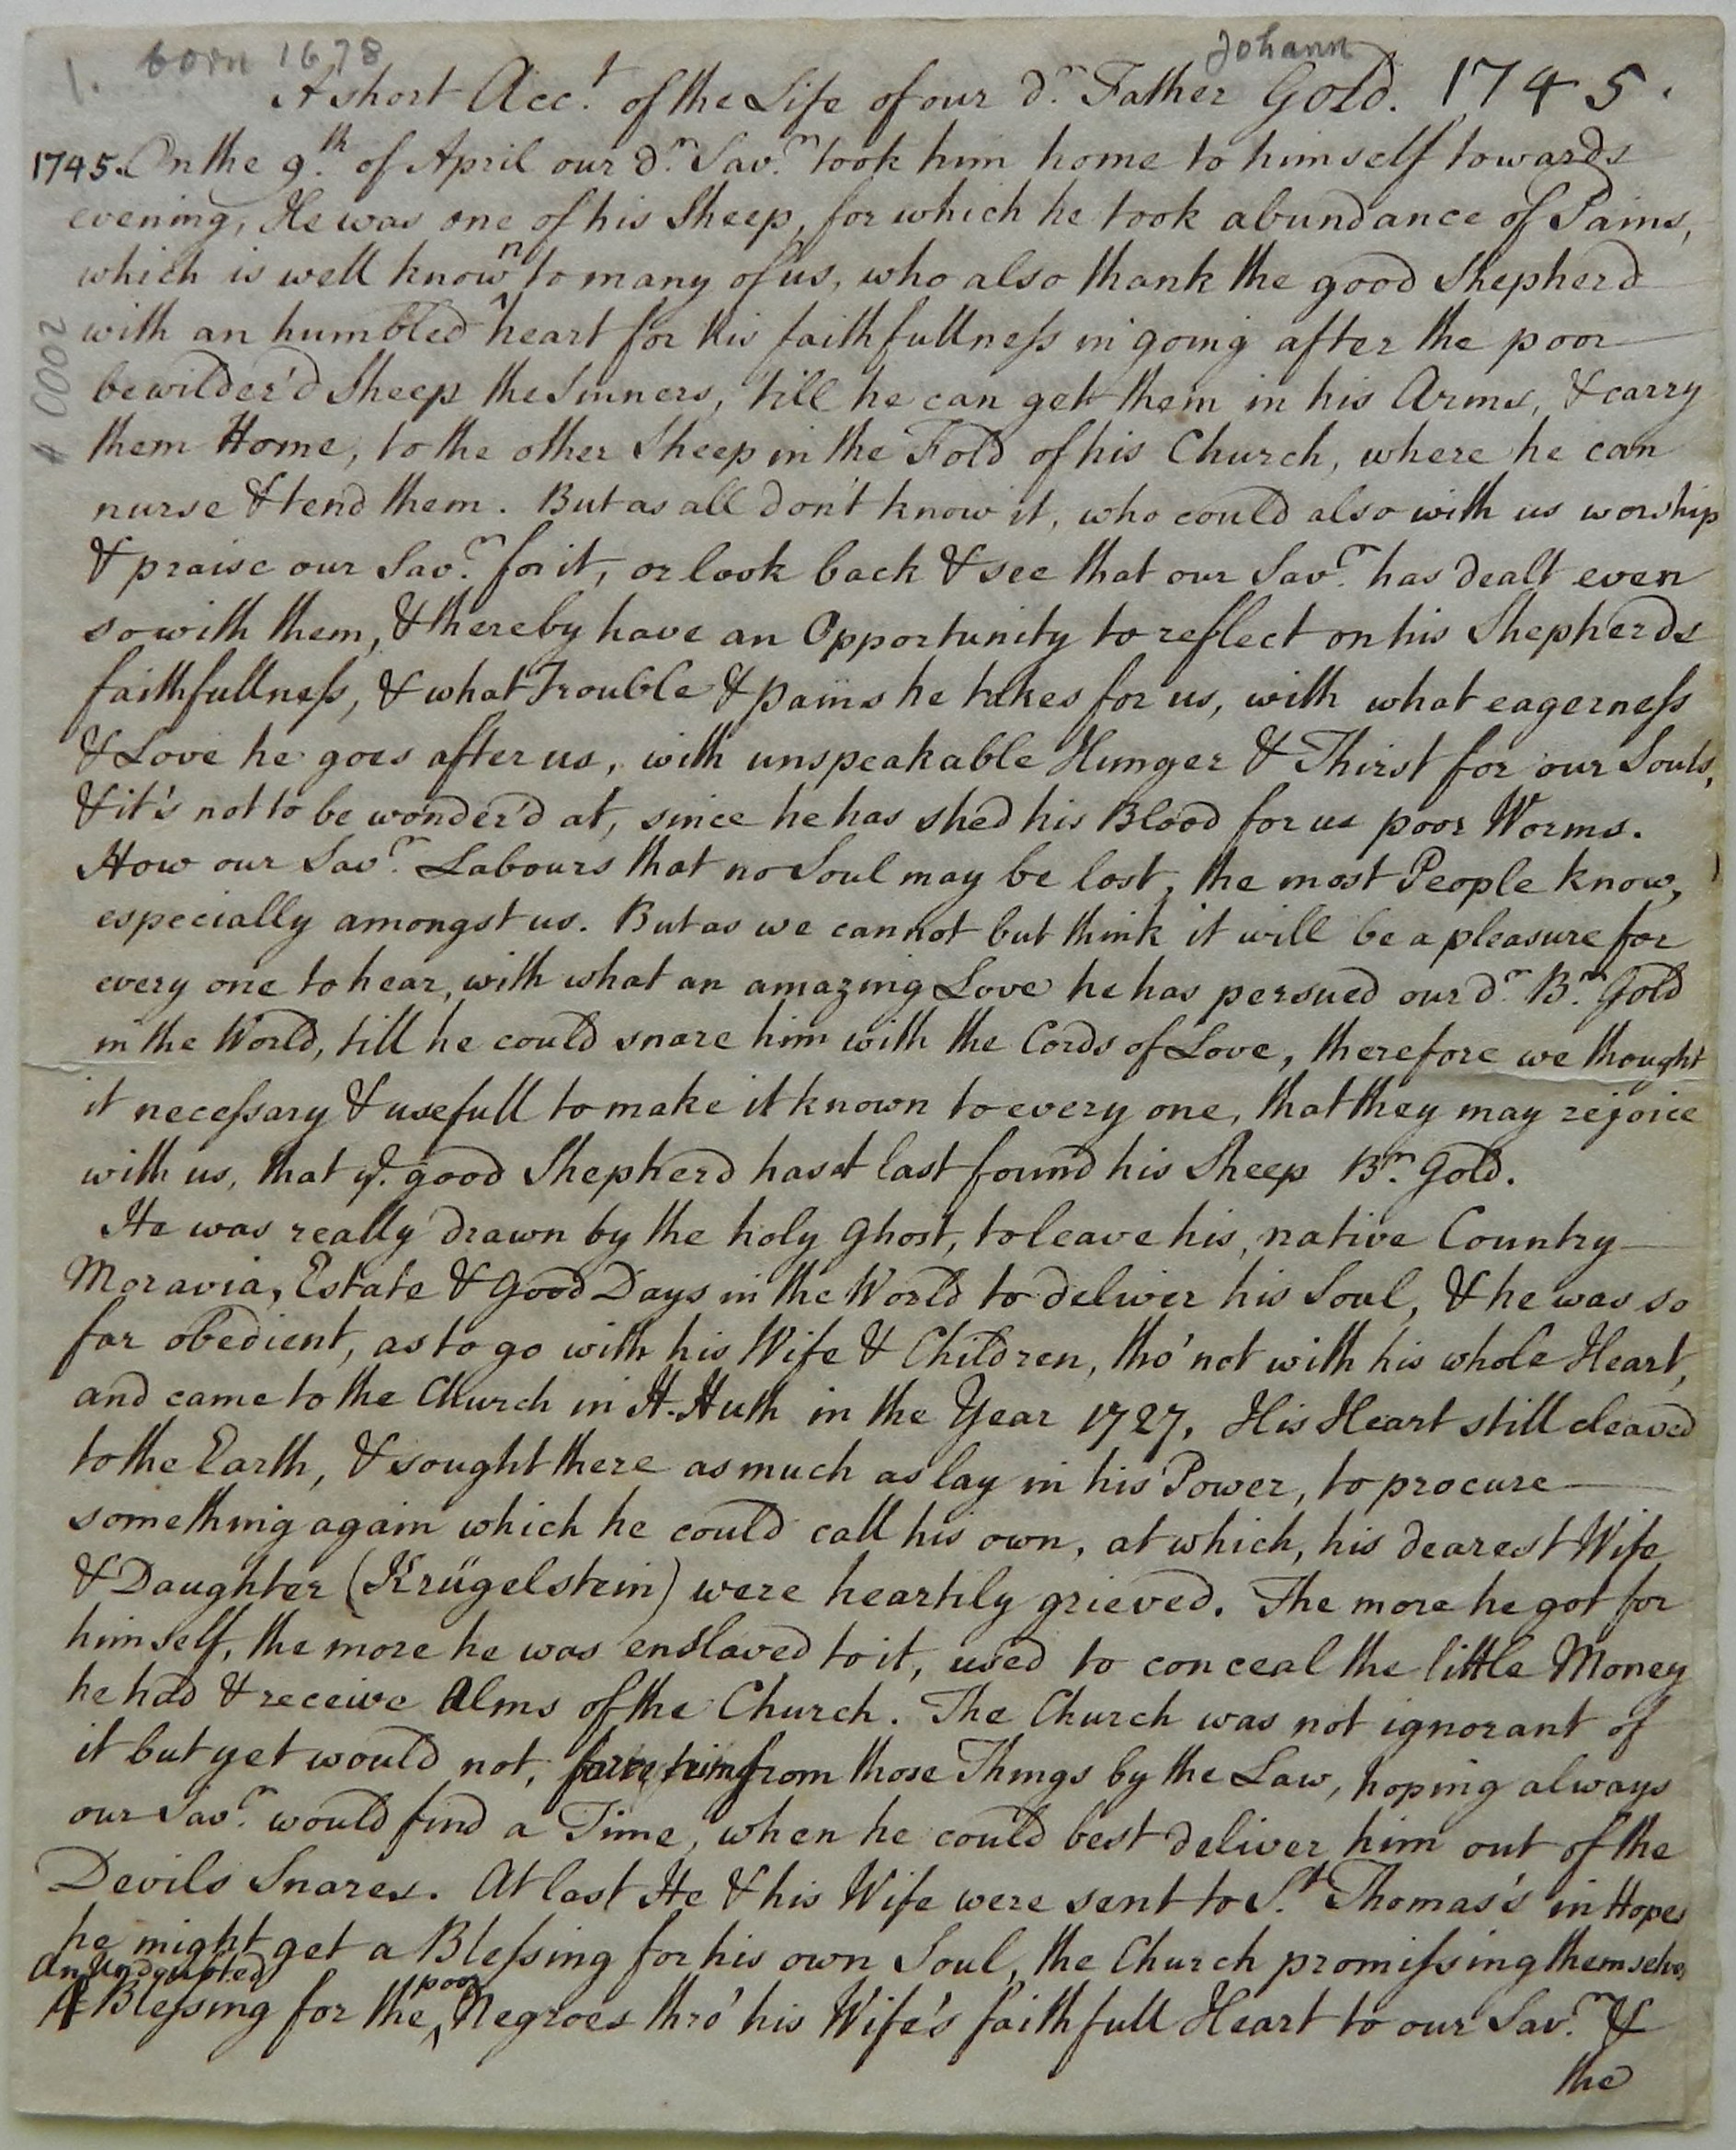 1. born 1678
Johann
A short Acct. of the Life of our dr. Father Gold. 1745.
1745. On the 9th. of April our dr. Savr. took him home to himself towards
evening, He was one of his Sheep, for which he took abundance of Pains,
which is well known to many of us, who also thank the good Shepherd
with an humbled heart for his faithfullness in going after the poor
bewilder'd Sheep the Sinners, till he can get them in his Arms, & carry
them Home, to the other Sheep in the Fold of his Church, where he can
nurse & tend them. But as all don't know it, who could also with us worship
& praise our Savr. for it, or look back & see that our Savr. has dealt even
so with them, & thereby have an Opportunity to reflect on his Shepherds
faithfullness, & what Trouble & pains he takes for us, with what eagerness
& Love he goes after us, with unspeakable Hunger & Thirst for our Souls,
& it's not to be wonder'd at, since he has shed his Blood for us poor Worms.
How our Savr. Labours that no Soul may be lost, the most People know,
especially amongst us. But as we cannot but think it will be a pleasure for
every one to hear, with what an amazing Love he has persued our dr. Br. Gold
in the World, till he could snare him with the Cords of Love, therefore we thought
it necessary & usefull to make it known to every one, that they may rejoice
with us, that ye. good Shepherd has at last found his Sheep Br. Gold.
He was really drawn by the holy Ghost, to leave his, native Country
Moravia, Estate & Good Days in the World to deliver his Soul, & he was so
far obedient, as to go with his Wife & Children, tho' not with his whole Heart,
and came to the Church in H.Huth in the Year 1727. His Heart still cleaved
to the Earth, & sought there as much as lay in his Power, to procure
something again which he could call his own, at which, his dearest Wife
& Daughter (Krügelstein) were heartily grieved. The more he got for
himself, the more he was enslaved to it, used to conceal the little Money
he had & receive Alms of the Church. The Church was not ignorant of
it but yet would not, from those Things by the Law, hoping always
our Savr. would find a Time, when he could best deliver him out of the
Devils Snares. At last He & his Wife were sent to St. Thomas's in Hopes
he might get a Blessing for his own Soul, the Church promissing themselves
An Undoubted poor
Blessing for the Negroes thro' his Wife's faithfull Heart to our Savr. &
the
A 0002